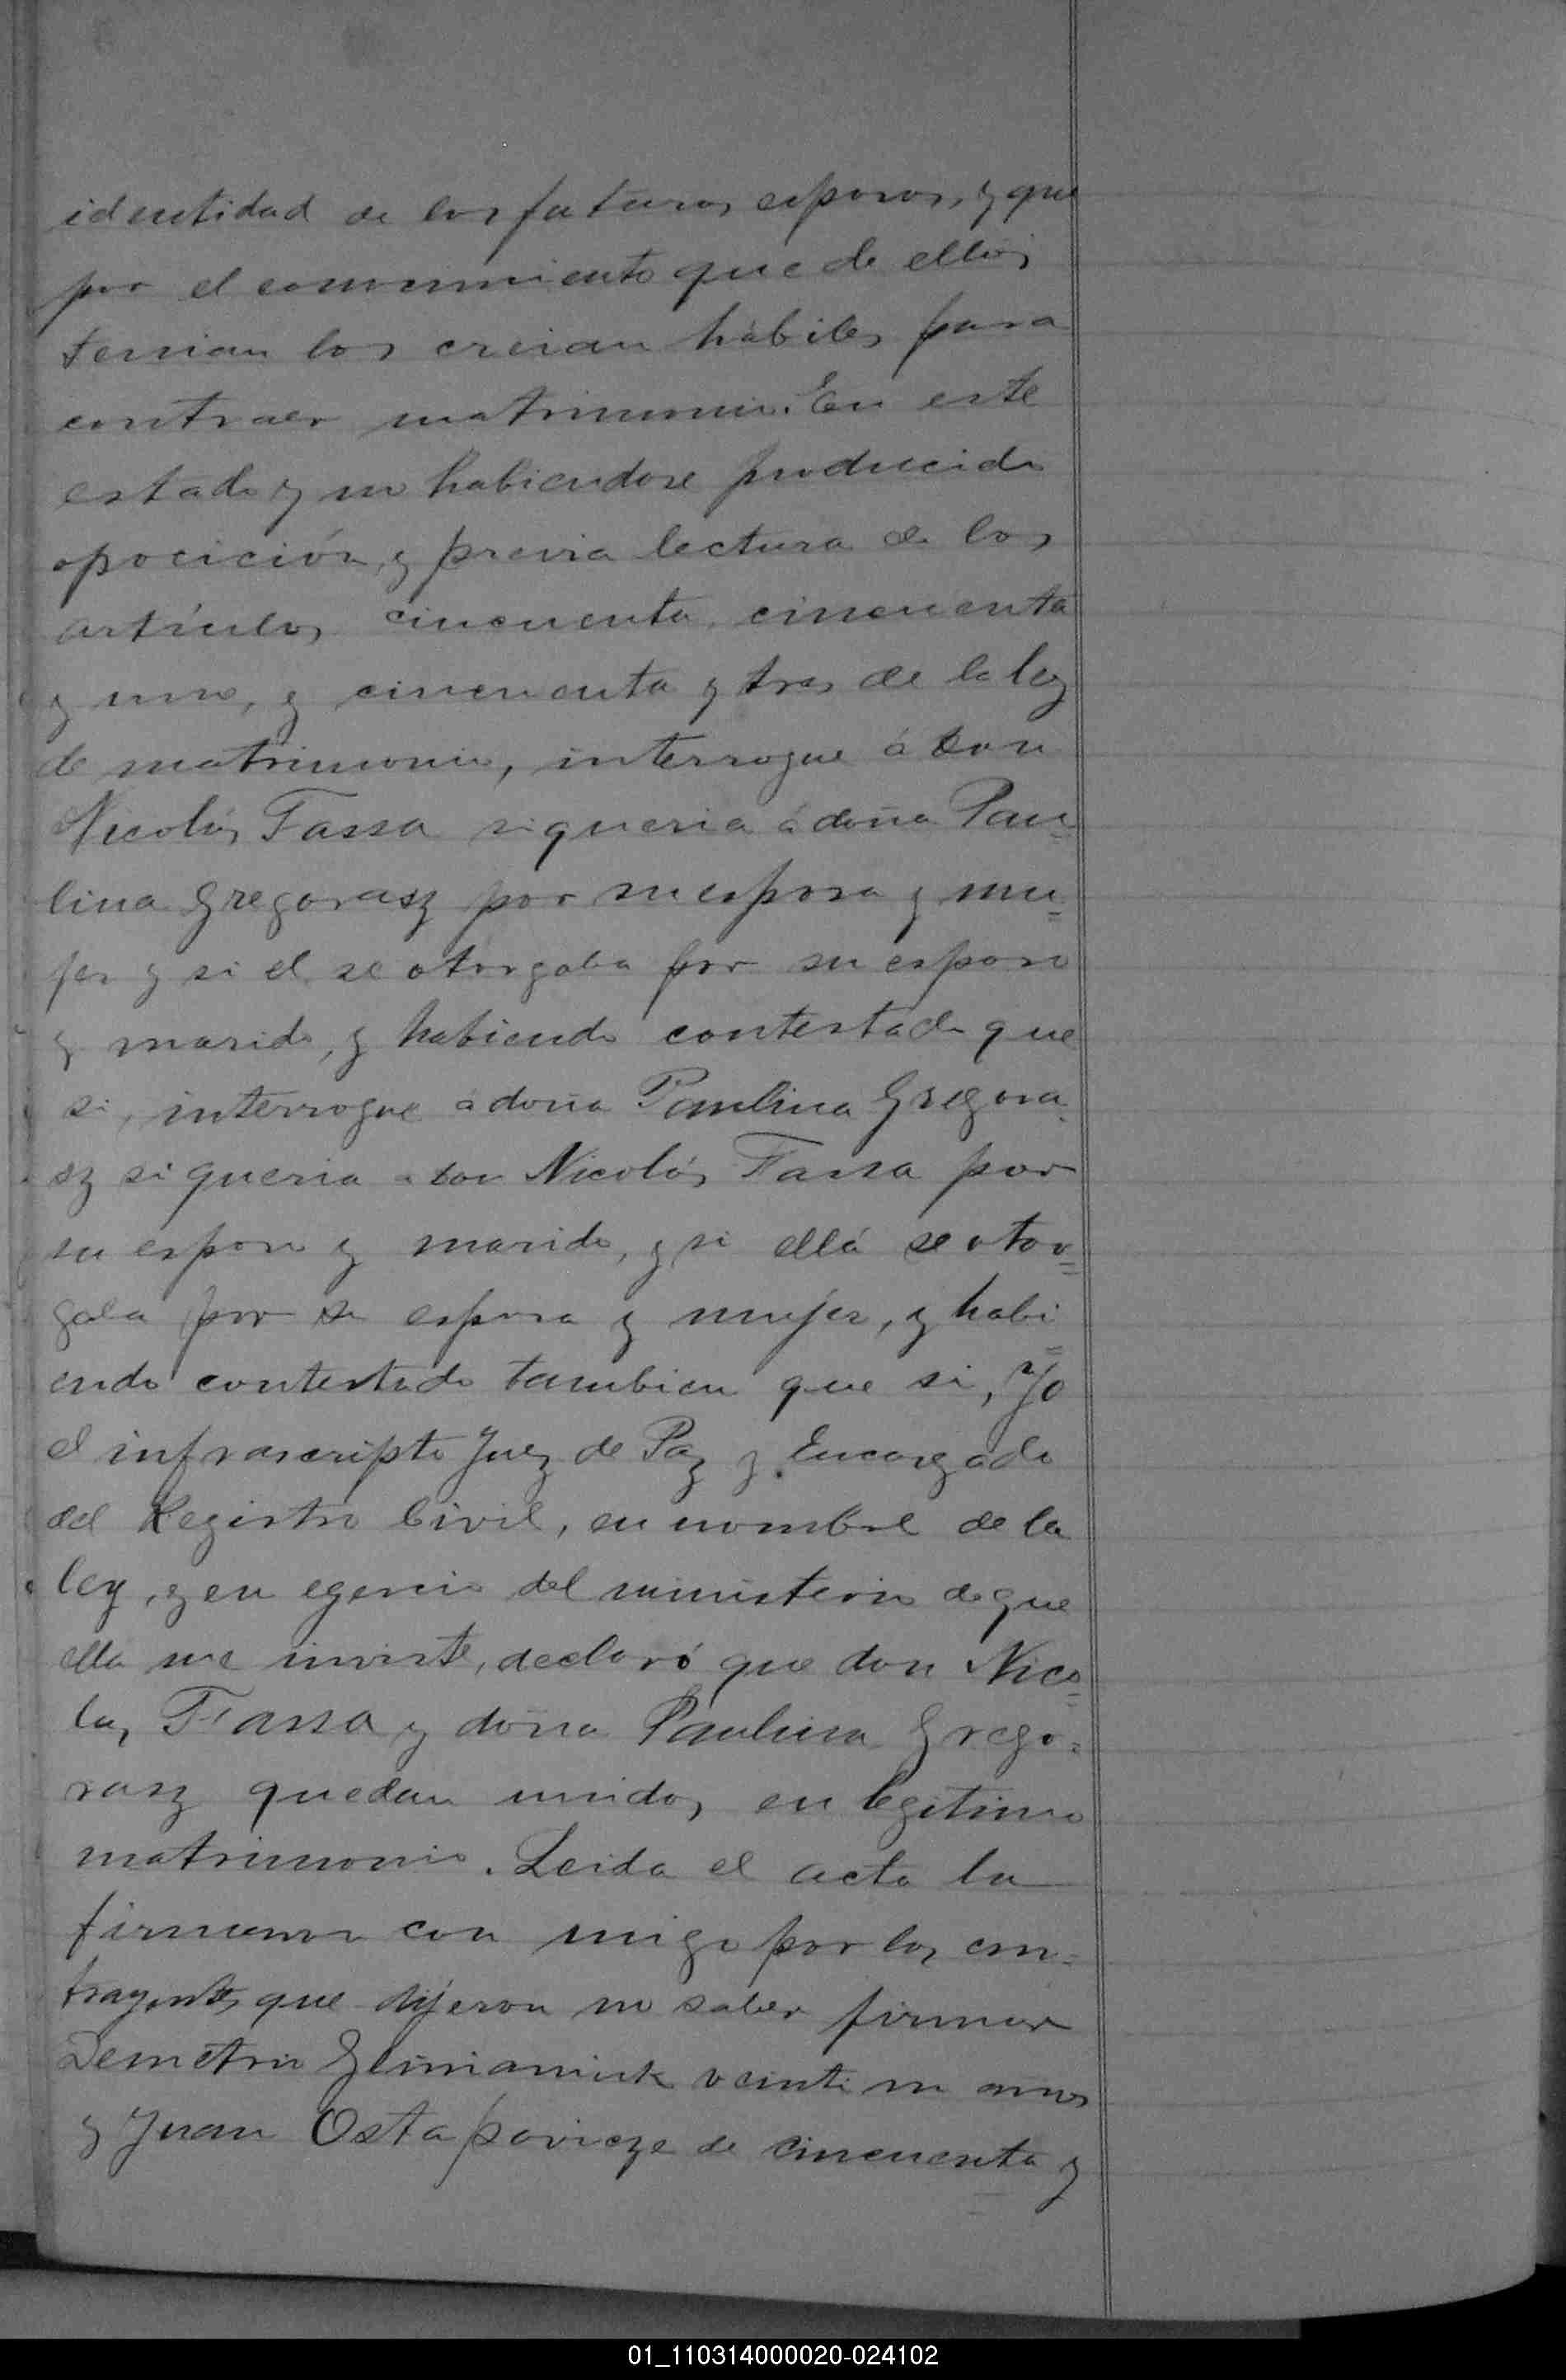 identidad de los futuros esposos, y que
por el conocimiento que de ellos
tenian los creian hábiles para
contraer matrimonio. En este
estado y no habiendose producido
opocición, y previa lectura de los
artículos cincuenta, cincuenta
y uno, y cincuenta y tres de la ley
de matrimonio, interrogue á don
Nicolás Tassa si queria á doña Pau=
lina Gregorasz por su esposa y mu=
jer y si el se otorgaba por su esposo
y marido, y habiendo contestado que
si, interrogue á doña Paulina Gregora=
sz si queria a don Nicolás Tassa por
su esposo y marido, y si ella se otor=
gaba por su esposa y mujer, y habi=
endo contestado tambien que si, Yo
el infrascripto Juez de Paz y Encargado
del Registro Civil, en nombre de la
ley, y en egercio del ministerio de que
ella me inviste, declaró que don Nico=
las Tassa y doña Paulina Grego=
rasz quedan unidos en legitimo
matrimonio. Leida el acta la
firmaron con migo por los con=
trayentes que dijeron no saber firmar
Demetrio veinti un años
y Juan Ostapovicze de cincuenta y
01_110314000020-024102